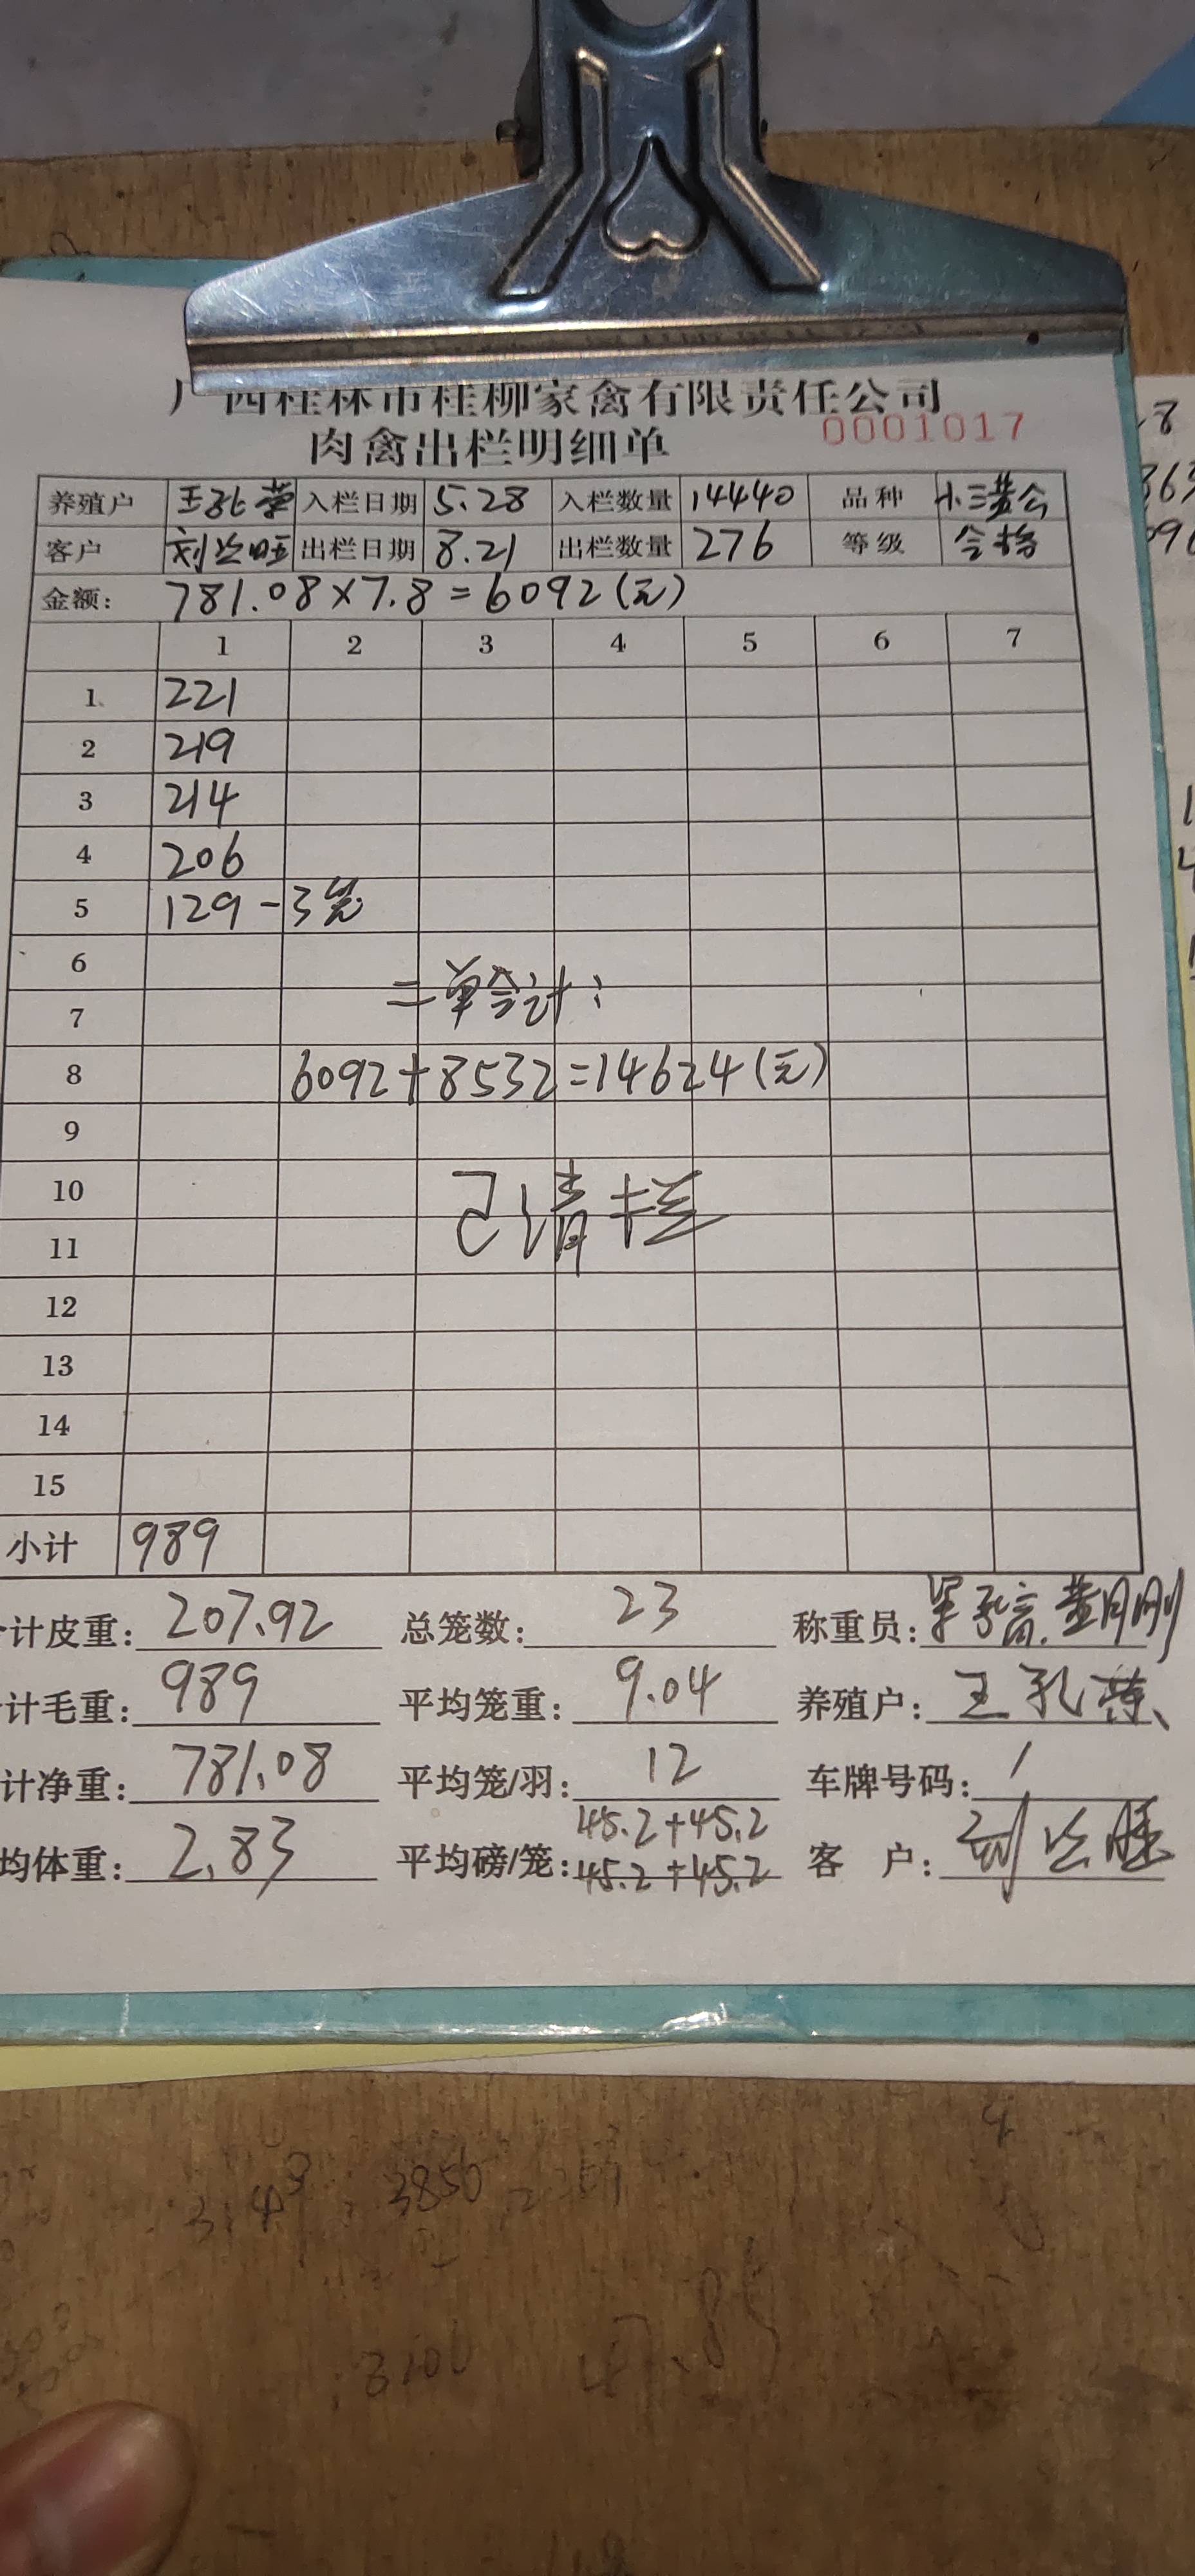 广西桂林市桂柳家禽有限责任公司
肉禽出栏明细单 0001017
养殖户 王孔荣 入栏日期 5.28 入栏数量 14440 品种 小三黄公
客户 刘兴旺 出栏日期 8.21 出栏数量 276 等级 合格
金额: 781.08×7.8=6092(元)
1 2 3 4 5 6 7
1、 221
2 219
3 214
4 206
5 129-3笼
6
二单合计:
7
8 6092+8532=14624(元)
9
10
已清栏
11
12
13
14
15
小计 989
计皮重: 207.92 总笼数: 23 称重员: 黄月刚
计毛重: 989 平均笼重: 9.04 养殖户: 王孔荣
计净重: 781.08 平均笼/羽: 12 车牌号码: /
45.2+45.2
均体重: 2.83 平均磅/笼: 45.2+45.2 客 户: 刘兴旺
3850
3100